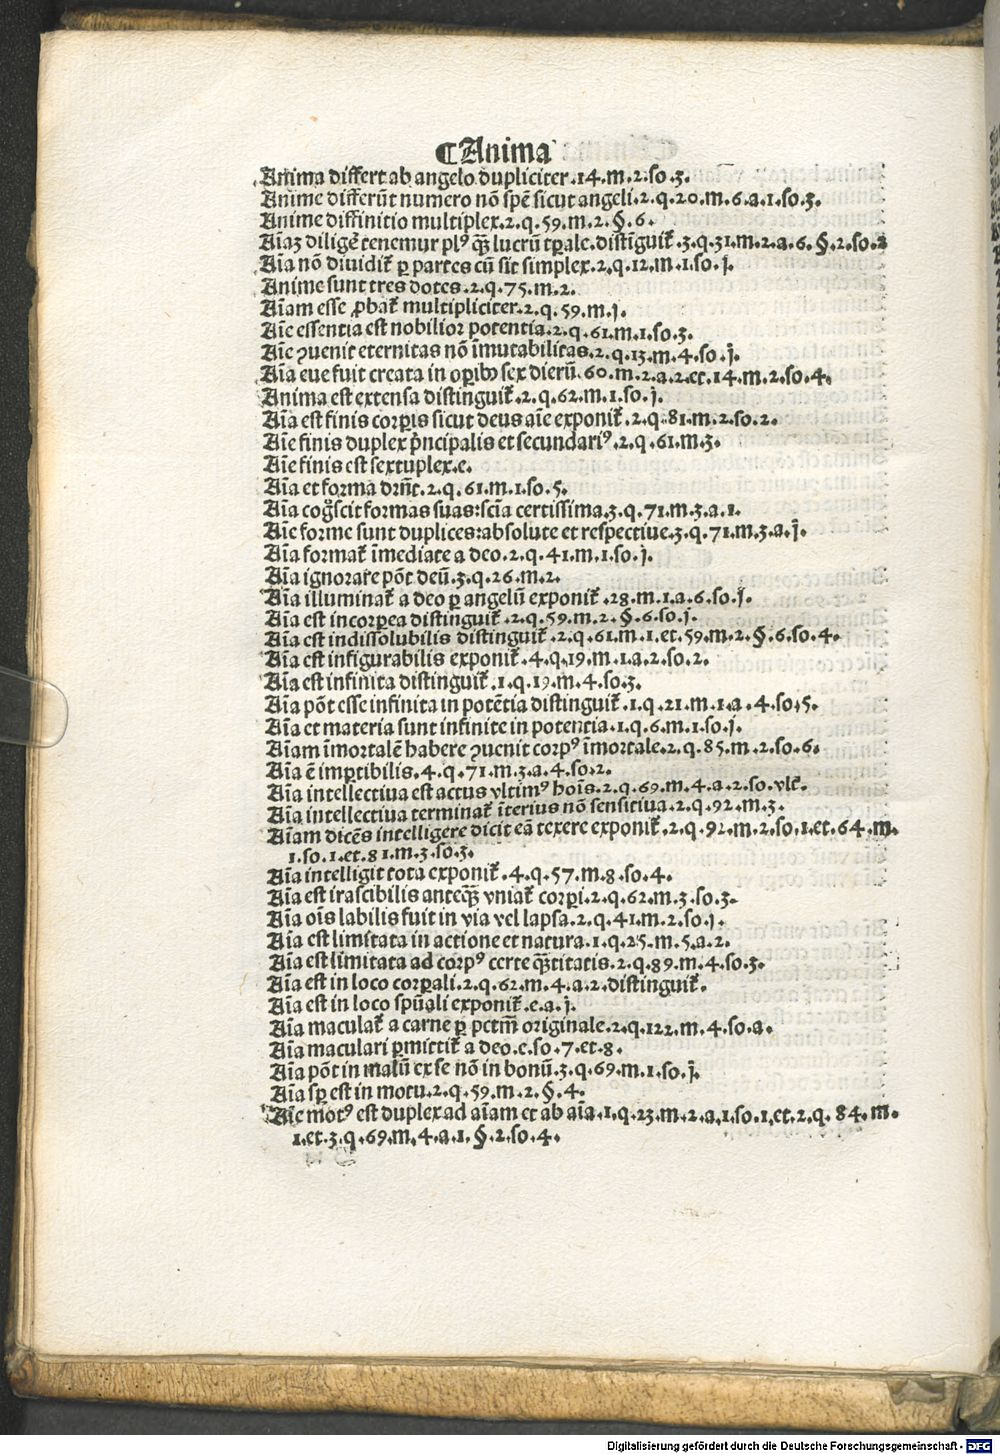 ¶Anima
Anima differt ab angelo dupliciter.14.m.2.so.3.
Anime differūt numero nō spē sicut angeli.2.q.20.m.6.a.1.so.3.
Anime diffinitio multiplex.2.q.59.m.2.§.6.
Aīaʒ diligē tenemur plꝰ qȝ̄ lucrū tꝑale.distīguit᷑.3.q.31.m.2.a.6.§.2.so.2
Aīa nō diuidit᷑ ꝑ partes cū sit simplex.2.q.12.m.1.so.j.
Anime sunt tres dotes.2.q.75.m.2.
Aīam esse ꝓbat᷑ multipliciter.2.q.59.m.j.
Aīe essentia est nobilior potentia.2.q.61.m.1.so.3.
Aīe ꝯuenit eternitas nō īmutabilitas.2.q.13.m.4.so.j.
Aīa eue fuit creata in oꝑibꝰ sex dierū.60.m.2.a.2.et.14.m.2.so.4.
Anima est extensa distinguit᷑.2.q.62.m.1.so.j.
Aīa est finis corꝑis sicut deus aīe exponit᷑.2.q.81.m.2.so.2.
Aīe finis duplex p̄ncipalis et secundariꝰ.2.q.61.m.3.
Aīe finis est sextuplex.e.
Aīa et forma drn̄t.2.q.61.m.1.so.5.
Aīa coḡscit formas suas:scīa certissima.3.q.71.m.3.a.1.
Aīe forme sunt duplices:absolute et respectiue.3.q.71.m.3.a.j.
Aīa format᷑ īmediate a deo.2.q.41.m.1.so.j.
Aīa ignorare pōt deū.3.q.26.m.2.
Aīa illuminat᷑ a deo ꝑ angelū exponit᷑.28.m.1.a.6.so.j.
Aīa est incorꝑea distinguit᷑.2.q.59.m.2.§.6.so.j.
Aīa est indissolubilis distinguit᷑.2.q.61.m.1.et.59.m.2.§.6.so.4.
Aīa est infigurabilis exponit᷑.4.q.19.m.1.a.2.so.2.
Aīa est infinita distinguit᷑.1.q.19.m.4.so.3.
Aīa pōt esse infinita in potētia distinguit᷑.1.q.21.m.1.a.4.so.5.
Aīa et materia sunt infinite in potentia.1.q.6.m.1.so.j.
Aīam īmortalē habere ꝯuenit corpꝰ īmortale.2.q.85.m.2.so.6.
Aīa ē imꝑtibilis.4.q.71.m.3.a.4.so.2.
Aīa intellectiua est actus vltimꝰ hoīs.2.q.69.m.4.a.2.so.vlt᷑.
Aīa intellectiua terminat᷑ īterius nō sensitiua.2.q.92.m.3.
Aīam dicēs intelligere dicit eā texere exponit᷑.2.q.92.m.2.so.1.et.64.m.
1.so.1.et.81.m.3.so.3.
Aīa intelligit tota exponit᷑.4.q.57.m.8.so.4.
Aīa est irascibilis anteqȝ̄ vniat᷑ corꝑi.2.q.62.m.3.so.3.
Aīa oīs labilis fuit in via vel lapsa.2.q.41.m.2.so.j.
Aīa est limitata in actione et natura.1.q.25.m.5.a.2.
Aīa est limitata ad corpꝰ certe qȝ̄titatis.2.q.89.m.4.so.3.
Aīa est in loco corꝑali.2.q.62.m.4.a.2.distinguit᷑.
Aīa est in loco spūali exponit᷑.e.a.j.
Aīa maculat᷑ a carne ꝑ pctm̄ originale.2.q.122.m.4.so.a.
Aīa maculari ꝑmittit᷑ a deo.e.so.7.et.8.
Aīa pōt in malū ex se nō in bonū.3.q.69.m.1.so.j.
Aīa sꝑ est in motu.2.q.59.m.2.§.4.
Aīe motꝰ est duplex ad aīam et ab aīa.1.q.23.m.2.a.1.so.1.et.2.q.84.m.
1.et.3.q.69.m.4.a.1.§.2.so.4.
Digitalisierung gefördert durch die Deutsche Forschungsgemeinschaft - DFG